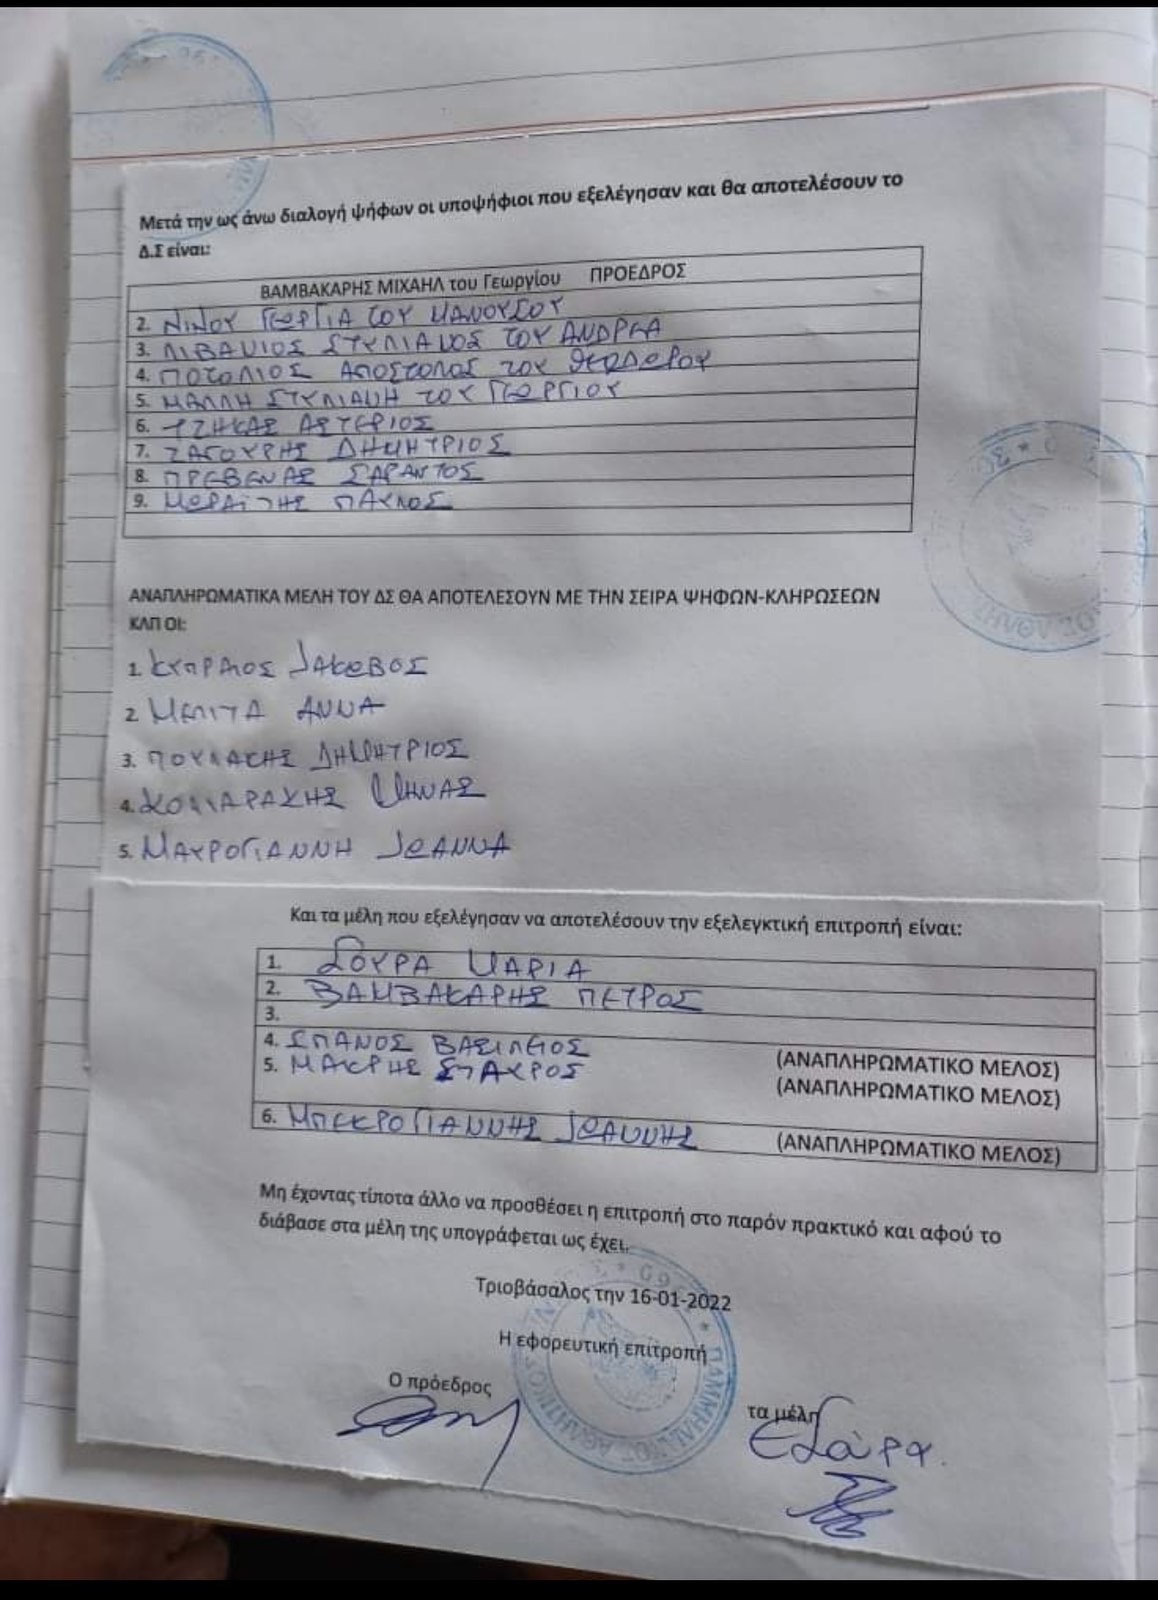 Μετά την ως άνω διαλογή ψήφων οι υποψήφιοι που εξελέγησαν και θα αποτελέσουν το
Δ.Σ είναι:
ΒΑΜΒΑΚΑΡΗΣ ΜΙΧΑΗΛ του Γεωργίου ΠΡΟΕΔΡΟΣ
2. ΝΙΝΟΥ ΓΕΩΡΓΙΑ ΤΟΥ ΜΑΝΟΥΣΟΥ
3. ΛΙΒΑΝΙΟΣ ΣΤΥΛΙΑΝΟΣ ΤΟΥ ΑΝΔΡΕΑ
4. ΠΟΤΟΛΙΟΣ ΑΠΟΣΤΟΛΟΣ ΤΟΥ ΘΕΟΔΩΡΟΥ
5. ΜΑΛΛΗ ΣΤΥΛΙΑΝΗ ΤΟΥ ΓΕΩΡΓΙΟΥ
6. ΤΖΗΚΑΣ ΑΣΤΕΡΙΟΣ
7. ΖΑΓΟΥΡΗΣ ΔΗΜΗΤΡΙΟΣ
8. ΠΡΕΒΕΝΑΣ ΣΑΡΑΝΤΟΣ
9. ΜΩΡΑΪΤΗΣ ΠΑΥΛΟΣ
ΑΝΑΠΛΗΡΩΜΑΤΙΚΑ ΜΕΛΗ ΤΟΥ ΔΣ ΘΑ ΑΠΟΤΕΛΕΣΟΥΝ ΜΕ ΤΗΝ ΣΕΙΡΑ ΨΗΦΩΝ-ΚΛΗΡΩΣΕΩΝ
ΚΛΠ ΟΙ:
1. ΚΥΠΡΑΙΟΣ ΙΑΚΩΒΟΣ
2. ΜΠΙΤΑ ΑΝΝΑ
3. ΠΟΥΛΑΚΗΣ ΔΗΜΗΤΡΙΟΣ
4. ΚΟΛΙΑΡΑΚΗΣ ΜΗΝΑΣ
5. ΜΑΥΡΟΓΙΑΝΝΗ ΙΩΑΝΝΑ
Και τα μέλη που εξελέγησαν να αποτελέσουν την εξελεγκτική επιτροπή είναι:
1. ΣΟΥΡΑ ΜΑΡΙΑ
2. ΒΑΜΒΑΚΑΡΗΣ ΠΕΤΡΟΣ
3.
4. ΣΠΑΝΟΣ ΒΑΣΙΛΕΙΟΣ (ΑΝΑΠΛΗΡΩΜΑΤΙΚΟ ΜΕΛΟΣ)
5. ΜΑΚΡΗΣ ΣΤΑΥΡΟΣ (ΑΝΑΠΛΗΡΩΜΑΤΙΚΟ ΜΕΛΟΣ)
6. ΜΠΕΚΡΟΓΙΑΝΝΗΣ ΙΩΑΝΝΗΣ (ΑΝΑΠΛΗΡΩΜΑΤΙΚΟ ΜΕΛΟΣ)
Μη έχοντας τίποτα άλλο να προσθέσει η επιτροπή στο παρόν πρακτικό και αφού το
διάβασε στα μέλη της υπογράφεται ως έχει.
Τριοβάσαλος την 16-01-2022
Η εφορευτική επιτροπή
Ο πρόεδρος
τα μέλη
ΠΑΜΜΗΛΙΑΚΟΣ ΑΘΛΗΤΙΚΟΣ